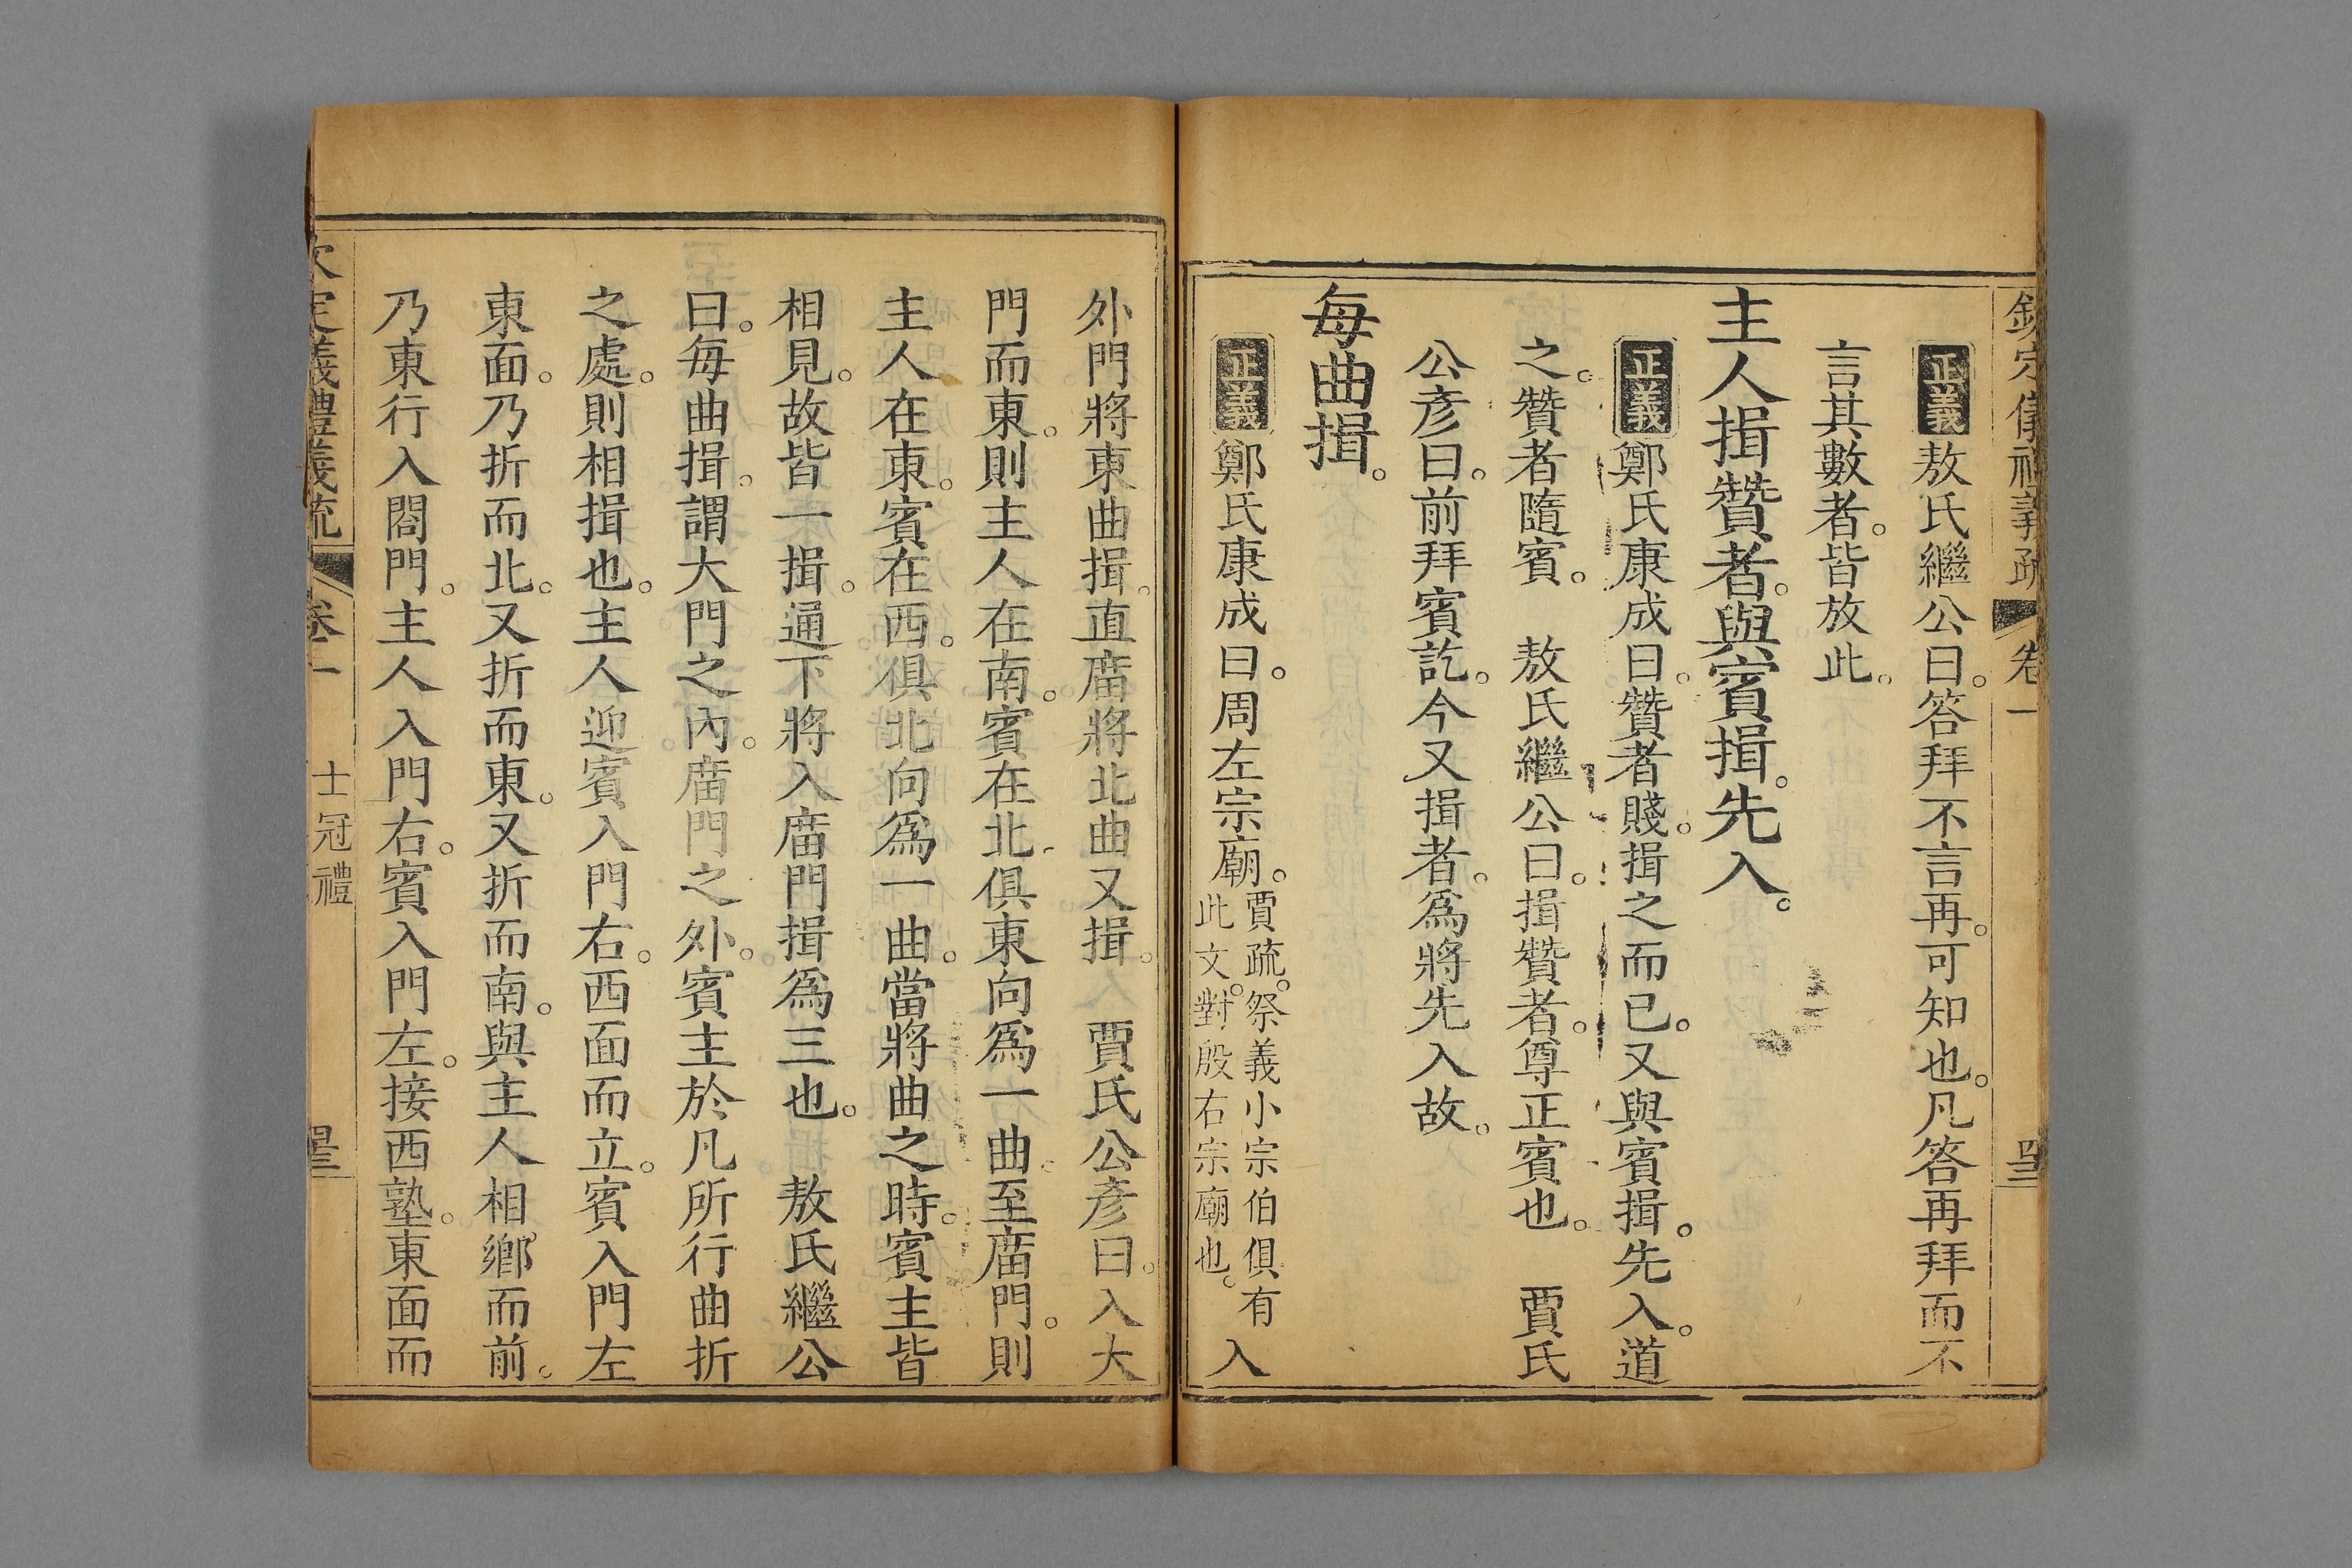 欽定儀禮義疏 卷一
正義 敖氏繼公曰。答拜不言再。可知也。凡答再拜而不
言其數者。皆放此。
主人揖贊者。與賓揖。先入。
正義 鄭氏康成曰。贊者賤。揖之而已。又與賓揖。先入。道
之。贊者隨賓。 敖氏繼公曰。揖贊者。尊正賓也。 賈氏
公彥曰。前拜賓訖。今又揖者。爲將先入故。
每曲揖。
正義 鄭氏康成曰。周左宗廟。賈疏。祭義小宗伯俱有此文。對殷右宗廟也。入
外門將東曲揖。直庿將北曲又揖。 賈氏公彥曰。入大
門而東。則主人在南。賓在北。俱東向爲一曲。至庿門。則
主人在東。賓在西。俱北向爲一曲。當將曲之時。賓主皆
相見。故皆一揖。通下將入庿門揖爲三也。 敖氏繼公
曰。每曲揖。謂大門之內。庿門之外。賓主於凡所行曲折
之處。則相揖也。主人迎賓入門右。西面而立。賓入門左
東面。乃折而北。又折而東。又折而南。與主人相鄉而前。
乃東行入閤門。主人入門右。賓入門左。接西塾。東面而
欽定儀禮義疏 卷一 士冠禮